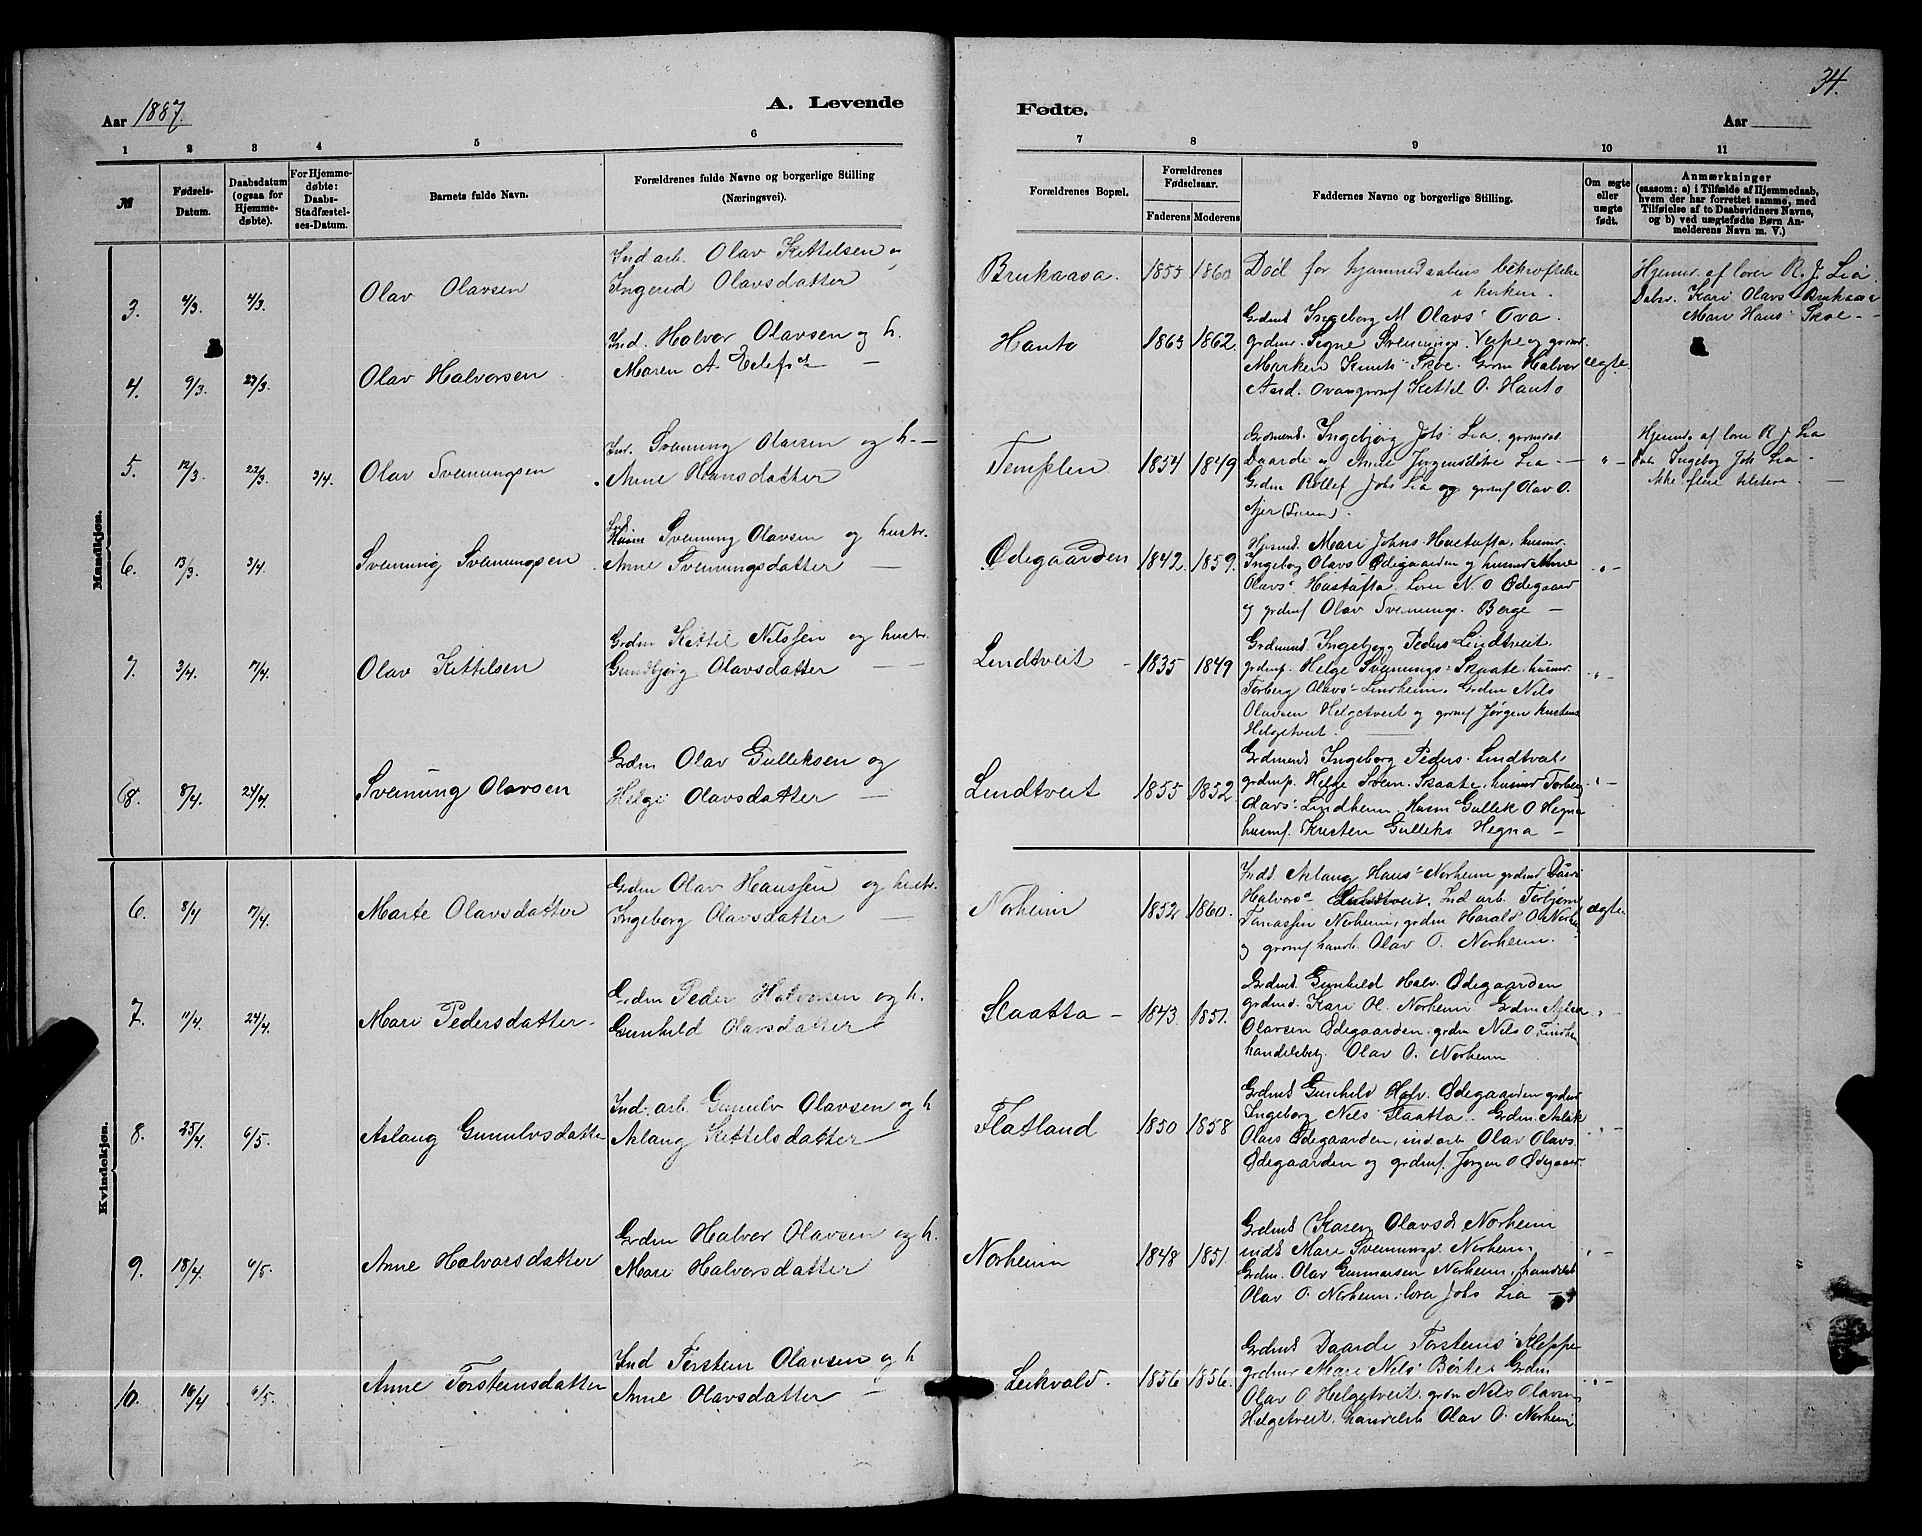 34.
Aar 1887.
A. Levende
Fødte.
Aar
1 2 3 4 5 6 7 8 9 10 11
№
Fødsels-Datum.
Daabsdatum (ogsaa for Hjemmedøbte).
For Hjemmedøbte: Daabs-Stadfæstelses-Datum.
Barnets fulde Navn.
Forældrenes fulde Navne og borgerlige Stilling (Næringsvei).
Forældrenes Bopæl.
Forældrenes Fødselsaar.
Faderens Moderens
Faddernes Navne og borgerlige Stilling.
Om ægte eller uægte født.
Anmærkninger
(saasom: a) i Tilfælde af Hjemmedaab,
hvem der har forrettet samme, med
Tilføielse af to Daabsvidners Navne,
og b) ved uægtefødte Børn Anmelderens Navn m. V.)
Mandkjøn.
3. 4/3. 4/3. Olav Olavsen
Ind arb. Olav Kettilsen og
Ingerid Olavsdatter
Brukaasa. 1855 1860
Død før hjemmedaabens bekræftelse
i kirken.
Hjemd. af lærer R. J. Lia
Kari Olavs Brukaasa
Mari Hans Skoe
4. 9/3. 27/3. Olav Halvorsen
Ind. Halvor Olavsen og h.
Maren A. —
Hanto 1863 1862
Grdmd Ingeborg M Olavs Ova.
grdmr. Signe Svennings. Vepe og
Marken Knuts Skoe. Grdm Halvor
Kettil O. Hanto
ægte
5. 12/3. 22/3. 3/4. Olav Svenungsen
Ind. Svenung Olavsen og h. —
Anne Hansdatter
Templen 1854 1849
Ingebjørg Johs Lia,
Daarde og Anne Jørgensdtr Lia —
Grdm Rollef Johs Lia og grdmf Olav O.
„ —
Hjemd. af lærer R J Lia
Ingebog Joh Lia —
ikke flere tilstede. —
6. 13/3. 3/4. Svenung Svenungsen
Svenung Olavsen og hustr.
Anne Svenungsdatter —
Ødegaarden 1842 1859.
Mari Johns Hastafta, husmr.
Ingeborg Olavs Ødegaarden og husmd Anne
Olavs Hastafta, Lærer N. O Ødegaard
og grdmf Olav Svenungs. Berge —
„ —
7. 3/4. 17/4. Olav Kittelsen
Grdm Kittil Nilssen og hustr.
Gundbjørg Olavsdatter —
Lindtveit — 1835 1849
Grdmd Ingebjørg Peders Lindtveit
grdmp. Helge Svenungs Skaate, husmr.
Torberg Olavs Lindheim. Grdm Nils
Olavsen Helgetveit og grdmf Jørgen Kristens
Helgetveit. —
„ —
8. 8/4. 24/4. Svenung Olavsen
Grdm Olav Gulleksen og
Helge Olavsdatter —
Lindtveit 1855 1852
Grdmd Ingeborg Peders. Lindtveit,
grdmp. Helge Sven. Skaate, husmd Torberg
Olavs Lindheim. Husm Gullek O Hegna
husmf. Kristen Gulleks Hegna —
„ —
Kvindekjøn.
6. 8/4 17/4. Marte Olavsdatter
Grdm Olav Hanssen og hustr.
Ingeborg Olavsdatter —
Norheim 1852 1860.
Indd Aslaug Hans Norheim grdmd
Halvors Lindtveit. Ind arb. Torbjørn
Tanassen Norheim, grdm Harald Ol. Norh
og grdmf handb. Olav O. Norheim.
ægte
7. 11/4. 24/4. Mari Pedersdatter.
Grdm Peder Halvorsen og h.
Gunhild Olavsdatter
Slaatta — 1843. 1851.
Grdmd. Gunhild Halv. Ødegaarden
grdmd. Kari Ol. Norheim Grdm Aslak
Olavsen Ødegaarden, grdm Nils O Lindheim
handelsbetj. Olav O. Norheim
„ —
8. 25/4. 6/5. Aslaug Gunulvsdatter
Ind. arb. Gunulv Olavsen og h
Aslaug Kittelsdatter
Flatland 1850 1858
Grdmd Gunhild Halv. Ødegaarden grdmr
Ingeborg Nils Slaatta. Grdm. Aslak
Olavs Ødegaarden, ind arb Olav Olavs
Ødegaarden og grdmf. Jørgen O Ødegaar.
„ —
9. 18/4. 6/5. Anne Halvorsdatter
Grdm Halvor Olavsen og h.
Mari Halvorsdatter
Norheim 1848 1851.
Grdmd Olavsd Norheim
indd Mari Svennungs. Norheim.
Grdm. Olav Gunnarsen Norheim, handelsb
Olav O. Norheim, lærer Johs Lia —
„ —
10. 16/4. 6/5. Anne Torsteinsdatter
Ind Torstein Olavsen og h
Anne Olavsdatter —
Leikvold. 1856 1856.
Grdmd Daarde Torsteins Kleppe
grdmr Mari Nils Børte Grdm
Olav O Helgetveit, grdm Nils Olavsen
Helgetveit, handelsb Olav O. Norheim
„ —